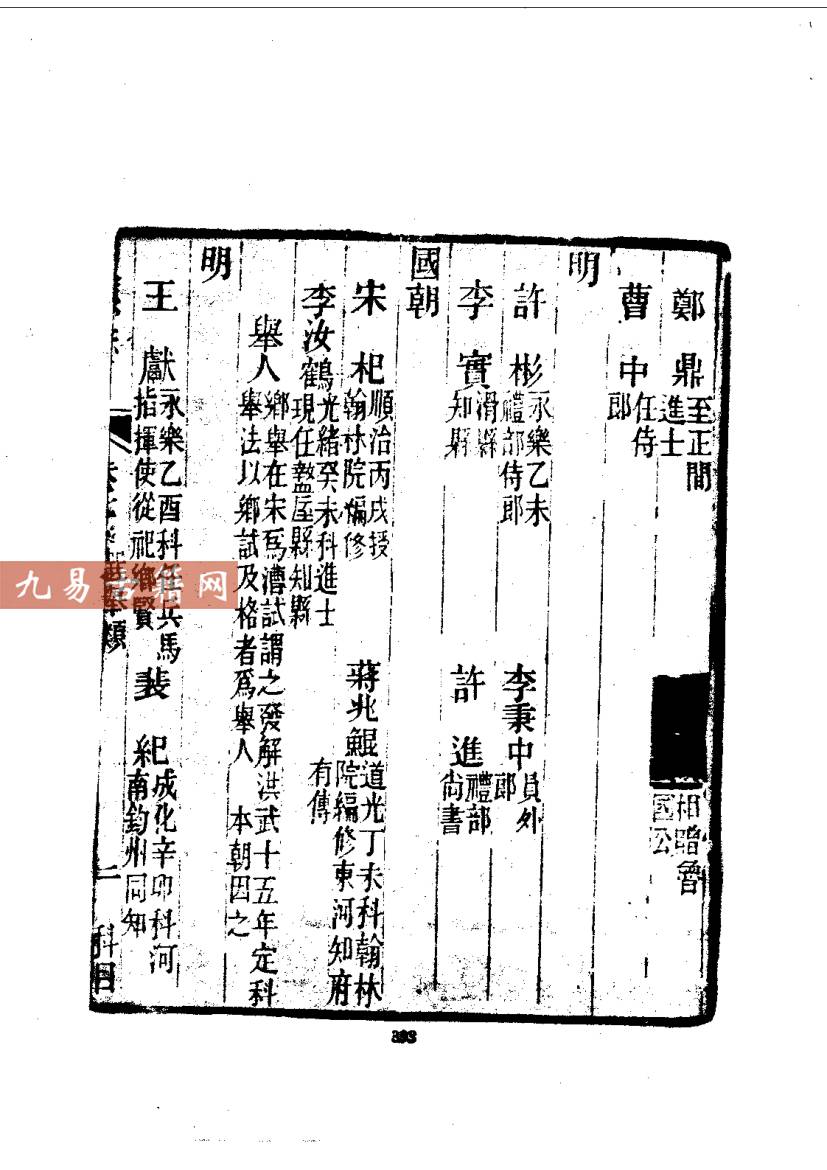 鄭鼎 至正間進士
相贈魯國公
曹中 任侍郎
明
許彬 永樂乙未禮部侍郎
李秉中 員外郎
李實 滑縣知縣
許進 禮部尚書
國朝
宋杞 順治丙戌授翰林院編修
蔣兆鯤 道光丁未科翰林院編修東河知府有傳
李汝鶴 光緒癸未科進士現任盩厔縣知縣
舉人 鄉舉在宋爲漕試謂之發解洪武十五年定科舉法以鄉試及格者爲舉人 本朝因之
明
王獻 永樂乙酉科任兵馬指揮使從祀鄉賢
裴紀 成化辛卯科河南鈞州同知
選舉類
二
科目
393
九易古籍网